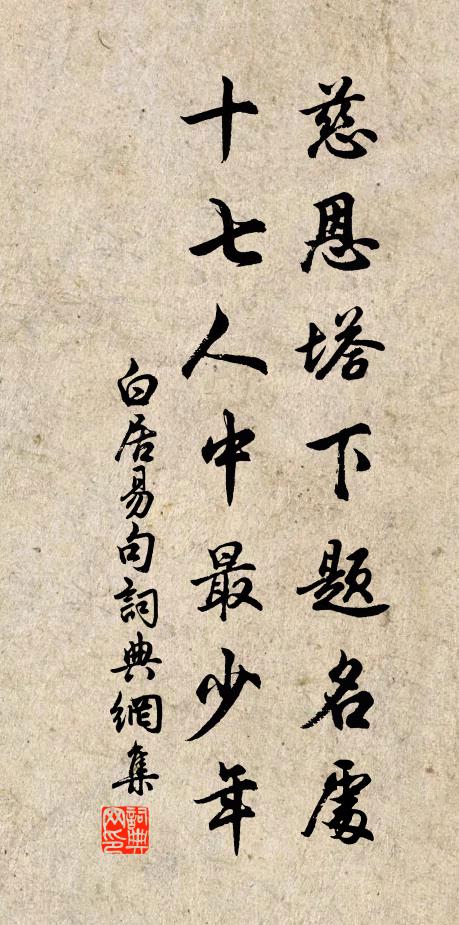 慈恩塔下題名處
十七人中最少年
白居易句詞典網集
詞典网印